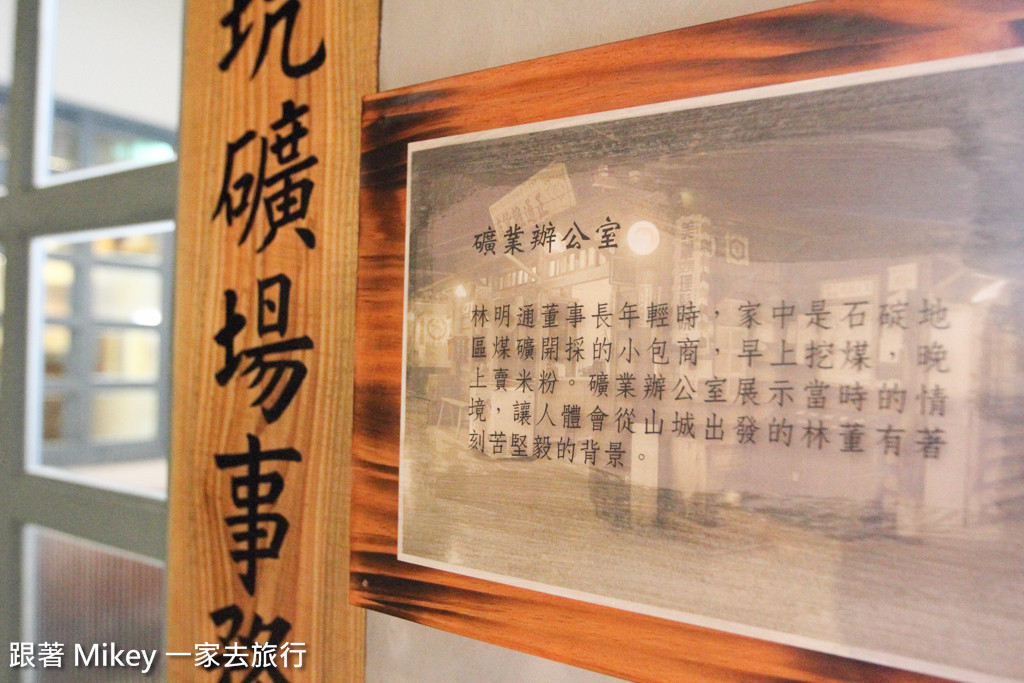 坑礦場事務
礦業辦公室
林明通董事長年輕時，家中是石碇地
區煤礦開採的小包商，早上挖煤，晚
上賣米粉。礦業辦公室展示當時的情
境，讓人體會從山城出發的林董有著
刻苦堅毅的背景。
跟著 Mikey 一家去旅行